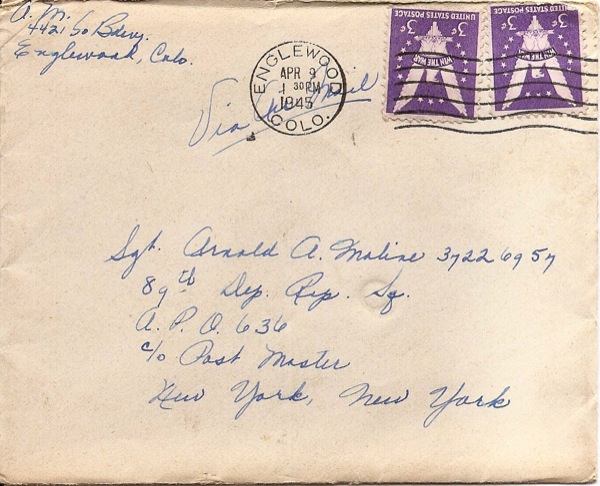 A. M.
4421 So Bdwy.
Englewood, Colo.
ENGLEWOOD
APR 9
1 30 PM
1945
COLO.
Via Air Mail
UNITED STATES POSTAGE
3¢
WIN THE WAR
UNITED STATES POSTAGE
3¢
WIN THE WAR
Sgt. Arnold A. Moline 37226957
89th Dep. Rep. Sq.
A. P. O. 636
c/o Post Master
New York, New York